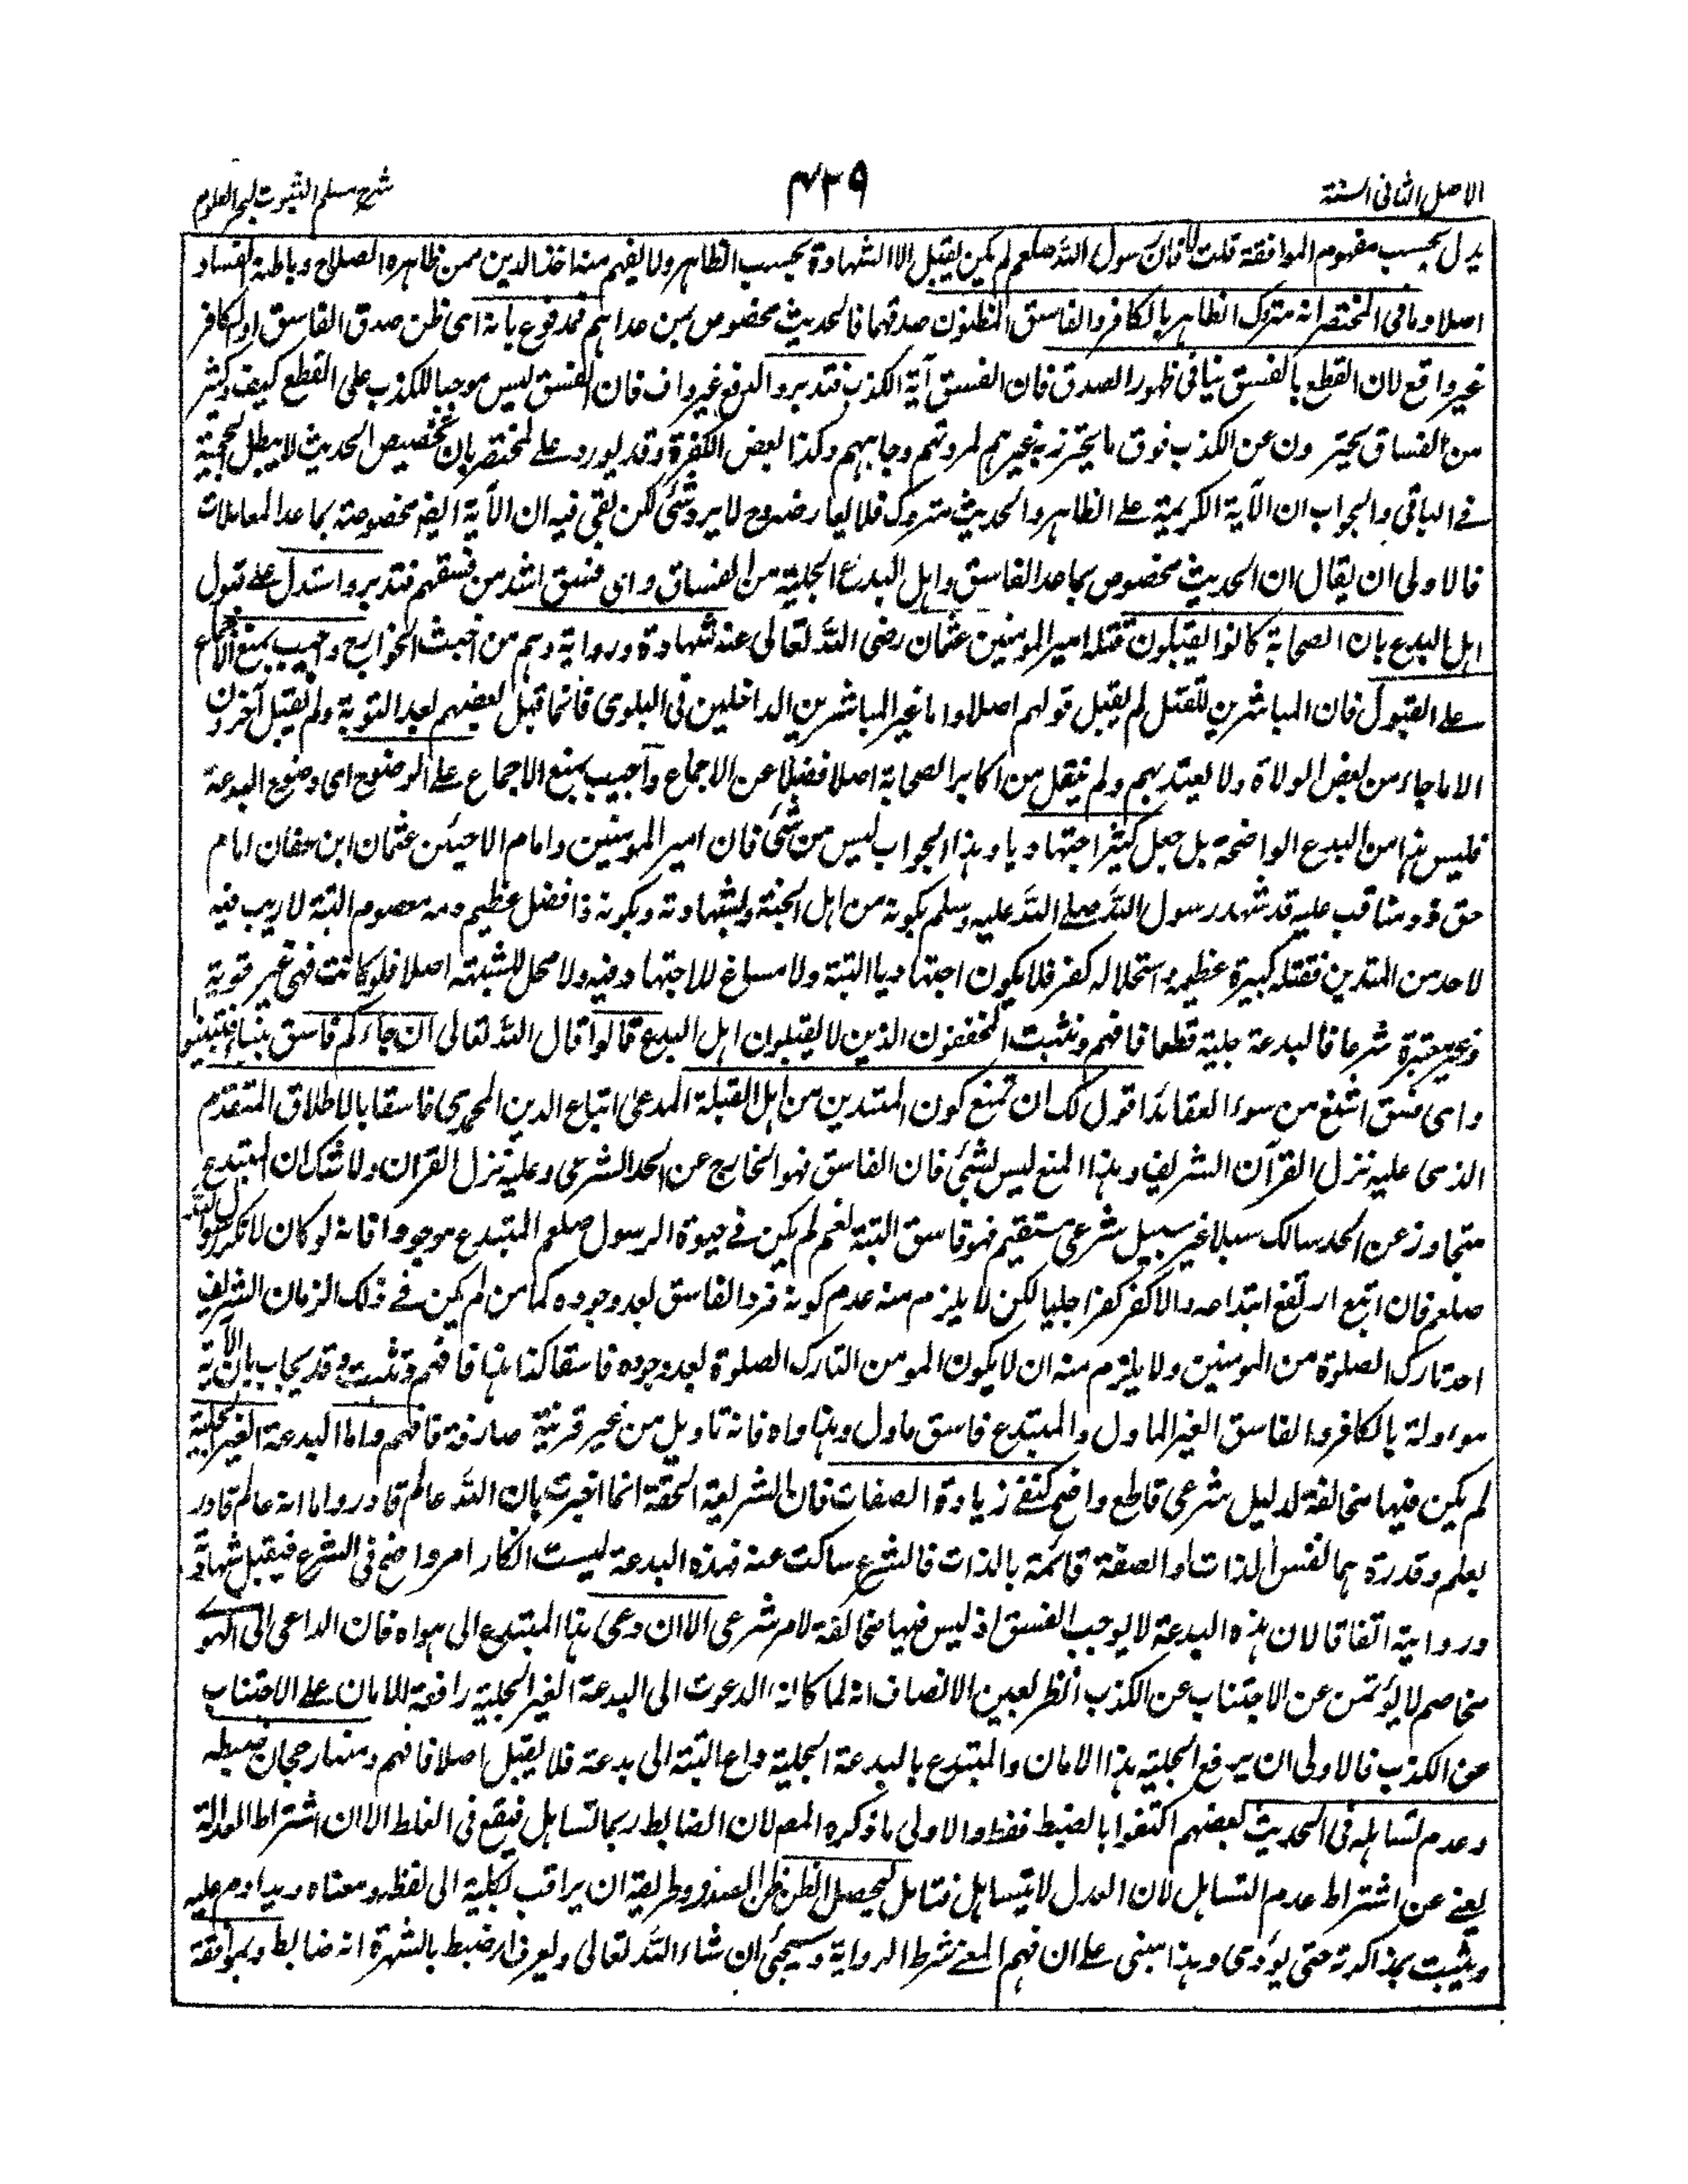 الاصل الثانی السنة
۴۳۹
شرح مسلم الثبوت لبحر العلوم
یدل بحسب مفهوم الموافقة قلت لا فان رسول الله صلعم لم یکن یقبل الا الشهادة بحسب الظاهر ولا یفهم منه اخذ الدین ممن ظاهره الصلاح وباطنه الفساد
اصلا وما فی المختصر انه متروک الظاهر بالکافر والفاسق المظنون صدقهما فالحدیث مخصوص بمن عداهم فمدفوع بانه ای ظن صدق الفاسق او الکافر
غیر واقع لان القطع بالفسق ینافی ظهور الصدق فان الفسق آیة الکذب فتدبر والدفع غیر واف فان الفسق لیس موجبا للکذب علی القطع کیف وکثیر
من الفساق یحترزون عن الکذب فوق ما یحترز به غیرهم لمروتهم وجاههم وکذا بعض الکفرة وقد یورد علے المختصر بان تخصیص الحدیث لا یبطل الحجیة
فے الباقی والجواب ان الآیة الکریمة علے الظاهر والحدیث متروک فلا یعارض وح لا یرد شئ لکن بقی فیه ان الآیة ایضا مخصوصة بما عدا المعاملات
فالاولی ان یقال ان الحدیث مخصوص بما عدا الفاسق واهل البدع الجلیة من الفساق وای فسق اشد من فسقهم فتدبر واستدل علے قبول
اهل البدع بان الصحابة کانوا یقبلون قتلة امیر المومنین عثمان رضی الله تعالی عنه شهادة وروایة وهم من اخبث الخوارج واجیب بمنع الاجماع
علے القبول فان المباشرین للقتل لم یقبل قولهم اصلا واما غیر المباشرین الداخلین فی البلوی فانما قبل بعضهم بعد التوبة ولم یقبل آخرون
الا ما جاء من بعض الولاة ولا یعتد بهم ولم ینقل من اکابر الصحابة اصلا فضلا عن الاجماع وأجیب بمنع الاجماع علے الوضوح ای وضوح البدعة
فلیس هذا من البدع الواضحة بل جعل کثیر اجتهادیا وهذا الجواب لیس من شئ فان امیر المومنین وامام الاحیین عثمان ابن عفان امام
حق ذو مناقب علیه قد شهد رسول الله صلے الله علیه وسلم بکونه من اهل الجنة وبشهادته وبکونه ذا فضل عظیم ودمه معصوم البتة لا ریب فیه
لاحد من المتدین فقتله کبیرة عظیمة واستحلاله کفر فلا یکون اجتهادیا البتة ولا مساغ للاجتهاد فیه ولا محل للشبهة اصلا فلو کانت فهی غیر قویة
وغیر معتبرة شرعا فالبدعة جلیة قطعا فافهم وتثبت المحققون الذین لا یقبلون اهل البدع قالوا قال الله تعالی ان جاءکم فاسق بنبإ فتبینوا
وای فسق اشنع من سوء العقائد اقول لک ان تمنع کون المتدین من اهل القبلة المدعی اتباع الدین المحمدی فاسقا بالاطلاق المتقدم
الذی علیه نزل القرآن الشریف وهذا المنع لیس بشئ فان الفاسق فهو الخارج عن الحد الشرعی وعلیه نزل القران ولا شک ان المبتدع
متجاوز عن الحد سالک سبلا غیر سبیل شرعی مستقیم فهو فاسق البتة نعم لم یکن فے حیوة الرسول صلعم المبتدع موجودا فانه لو کان لانکر رسول الله
صلعم فان اتبع ارتفع ابتداعه والا کفر کفرا جلیا لکن لا یلزم منه عدم کونه فرد الفاسق بعد وجوده کما من لم یکن فے ذلک الزمان الشریف
احد تارک الصلوة من المومنین ولا یلزم منه ان لا یکون المومن التارک الصلوة بعد وجوده فاسقا کذا هنا فافهم وتثبت وقد یجاب بان الآیة
موءولة بالکافر والفاسق الغیر الماول والمبتدع فاسق ماول وهذا واه فانه تاویل من غیر قرینة صارفة فافهم واما البدعة الغیر الجلیة
لم یکن فیها مخالفة لدلیل شرعی قاطع واضح کنفے زیادة الصفات فان الشریعة الحقة انما اخبرت بان الله عالم قادر واما انه عالم قادر
بعلم وقدرة هما نفس الذات او الصفة قائمة بالذات فالشرع ساکت عنه فهذه البدعة لیست انکار امر واضح فی الشرع فیقبل شهادته
وروایته اتفاقا لان هذه البدعة لا یوجب الفسق اذ لیس فیها مخالفة لامر شرعی الا ان دعی هذا المبتدع الی هواه فان الداعی الی الهوے
مخاصم لا یؤتمن عن الاجتناب عن الکذب انظر بعین الانصاف انه لما کانه الدعوت الی البدعة الغیر الجلیة رافعة للامان علے الاجتناب
عن الکذب فالاولی ان یرفع الجلیة هذا الامان والمبتدع بالبدعة الجلیة داع البتة الی بدعة فلا یقبل اصلا فافهم ومنها رجحان ضبطه
وعدم تساهله فی الحدیث بعضهم اکتفوا بالضبط فقط والاولی ما ذکره المصم لان الضابط ربما تساهل فیقع فی الغلط الا ان اشتراط العدالة
یغنے عن اشتراط عدم التساهل لان العدل لا یتساهل فتامل لیحصل الظن ظن الصدق وطریقه ان یراقب بکلیة الی لفظه ومعناه ویداوم علیه
ویثبت بمذاکرته حتی یؤدی وهذا مبنی علے ان فهم المعنے شرط الروایة وسیجئ ان شاء الله تعالی ویعرف الضبط بالشهرة انه ضابط وبموافقة